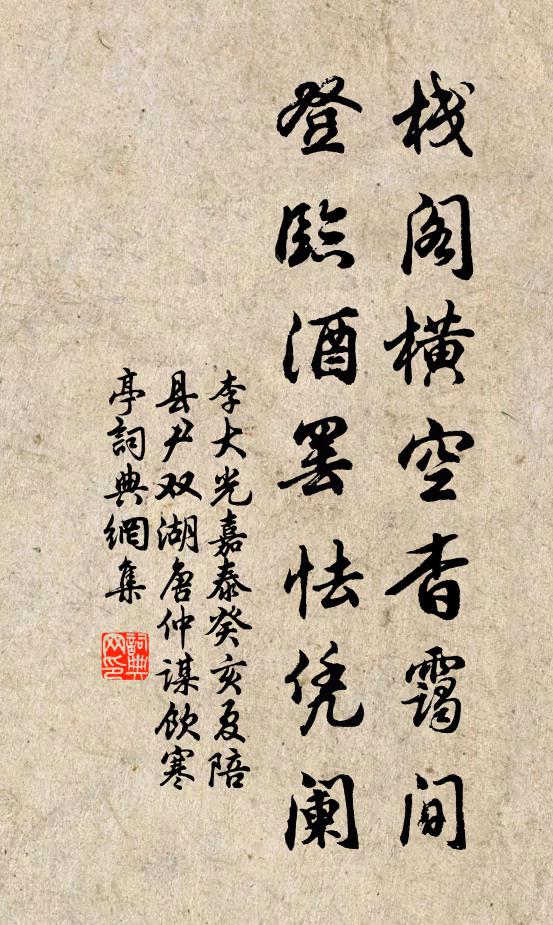 栈阁横空杳霭间
登临酒罢怯凭阑
李大光嘉泰癸亥夏陪
县尹双湖唐仲谋饮寒
亭詞典網集
詞典
网印